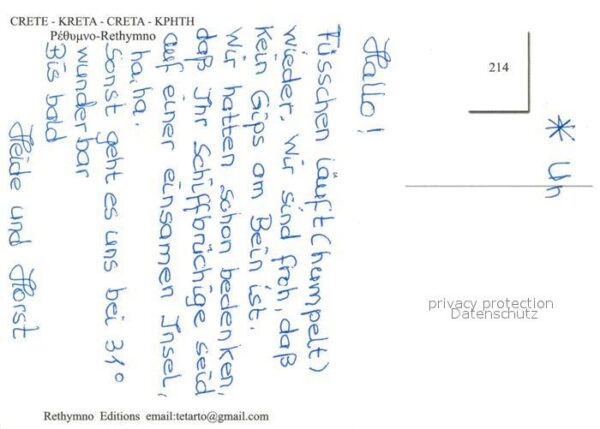 CRETE - KRETA - CRETA - ΚΡΗΤΗ
Ρέθυμνο-Rethymno
214
Hallo!
Füsschen läuft (humpelt)
wieder. Wir sind froh, daß
kein Gips am Bein ist.
Wir hatten schon bedenken,
daß Ihr Schiffbrüchige seid
auf einer einsamen Insel,
ha, ha.
Sonst geht es uns bei 31°
wunderbar
Bis bald
Heide und Horst
privacy protection
Datenschutz
Rethymno Editions email:tetarto@gmail.com